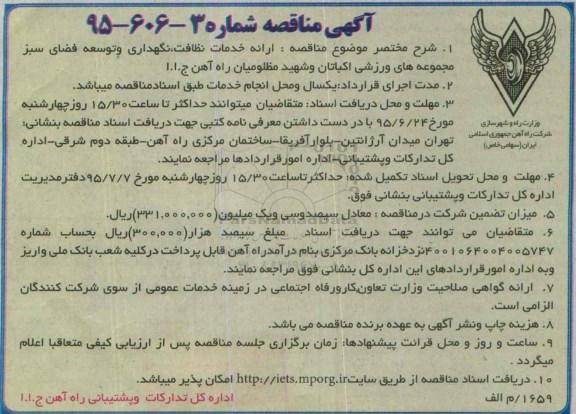 آگهی مناقصه شماره ۳-۶۰۶-۹۵
وزارت راه و شهرسازی
شرکت راه آهن جمهوری اسلامی
ایران (سهامی خاص)
۱. شرح مختصر موضوع مناقصه : ارائه خدمات نظافت،نگهداری وتوسعه فضای سبز
مجموعه های ورزشی اکباتان وشهید مظلومیان راه آهن ج.ا.ا
۲. مدت اجرای قرارداد:یکسال ومحل انجام خدمات طبق اسنادمناقصه میباشد.
۳. مهلت و محل دریافت اسناد: متقاضیان میتوانند حداکثر تا ساعت ۱۵/۳۰ روزچهارشنبه
مورخ ۹۵/۶/۲۴ با در دست داشتن معرفی نامه کتبی جهت دریافت اسناد مناقصه بنشانی:
تهران میدان آرژانتین-بلوارآفریقا-ساختمان مرکزی راه آهن-طبقه دوم شرقی-اداره
کل تدارکات وپشتیبانی-اداره امورقراردادها مراجعه نمایند.
۴. مهلت و محل تحویل اسناد تکمیل شده: حداکثرتاساعت ۱۵/۳۰ روزچهارشنبه مورخ ۹۵/۷/۷ دفترمدیریت
اداره کل تدارکات وپشتیبانی بنشانی فوق.
۵. میزان تضمین شرکت درمناقصه : معادل سیصدوسی ویک میلیون (۳۳۱,۰۰۰,۰۰۰) ریال.
۶. متقاضیان می توانند جهت دریافت اسناد مبلغ سیصد هزار (۳۰۰,۰۰۰) ریال بحساب شماره
۴۰۰۱۰۶۴۰۰۴۰۰۵۷۴۷ نزدخزانه بانک مرکزی بنام درآمدراه آهن قابل پرداخت درکلیه شعب بانک ملی واریز
وبه اداره امورقراردادهای این اداره کل بنشانی فوق مراجعه نمایند.
۷. ارائه گواهی صلاحیت وزارت تعاون،کارورفاه اجتماعی در زمینه خدمات عمومی از سوی شرکت کنندگان
الزامی است.
۸. هزینه چاپ ونشر آگهی به عهده برنده مناقصه می باشد.
۹. ساعت و روز و محل قرائت پیشنهادها: زمان برگزاری جلسه مناقصه پس از ارزیابی کیفی متعاقبا اعلام
میگردد .
۱۰. دریافت اسناد مناقصه از طریق سایت http://iets.mporg.ir امکان پذیر میباشد.
۱۶۵۹/م الف
اداره کل تدارکات وپشتیبانی راه آهن ج.ا.ا